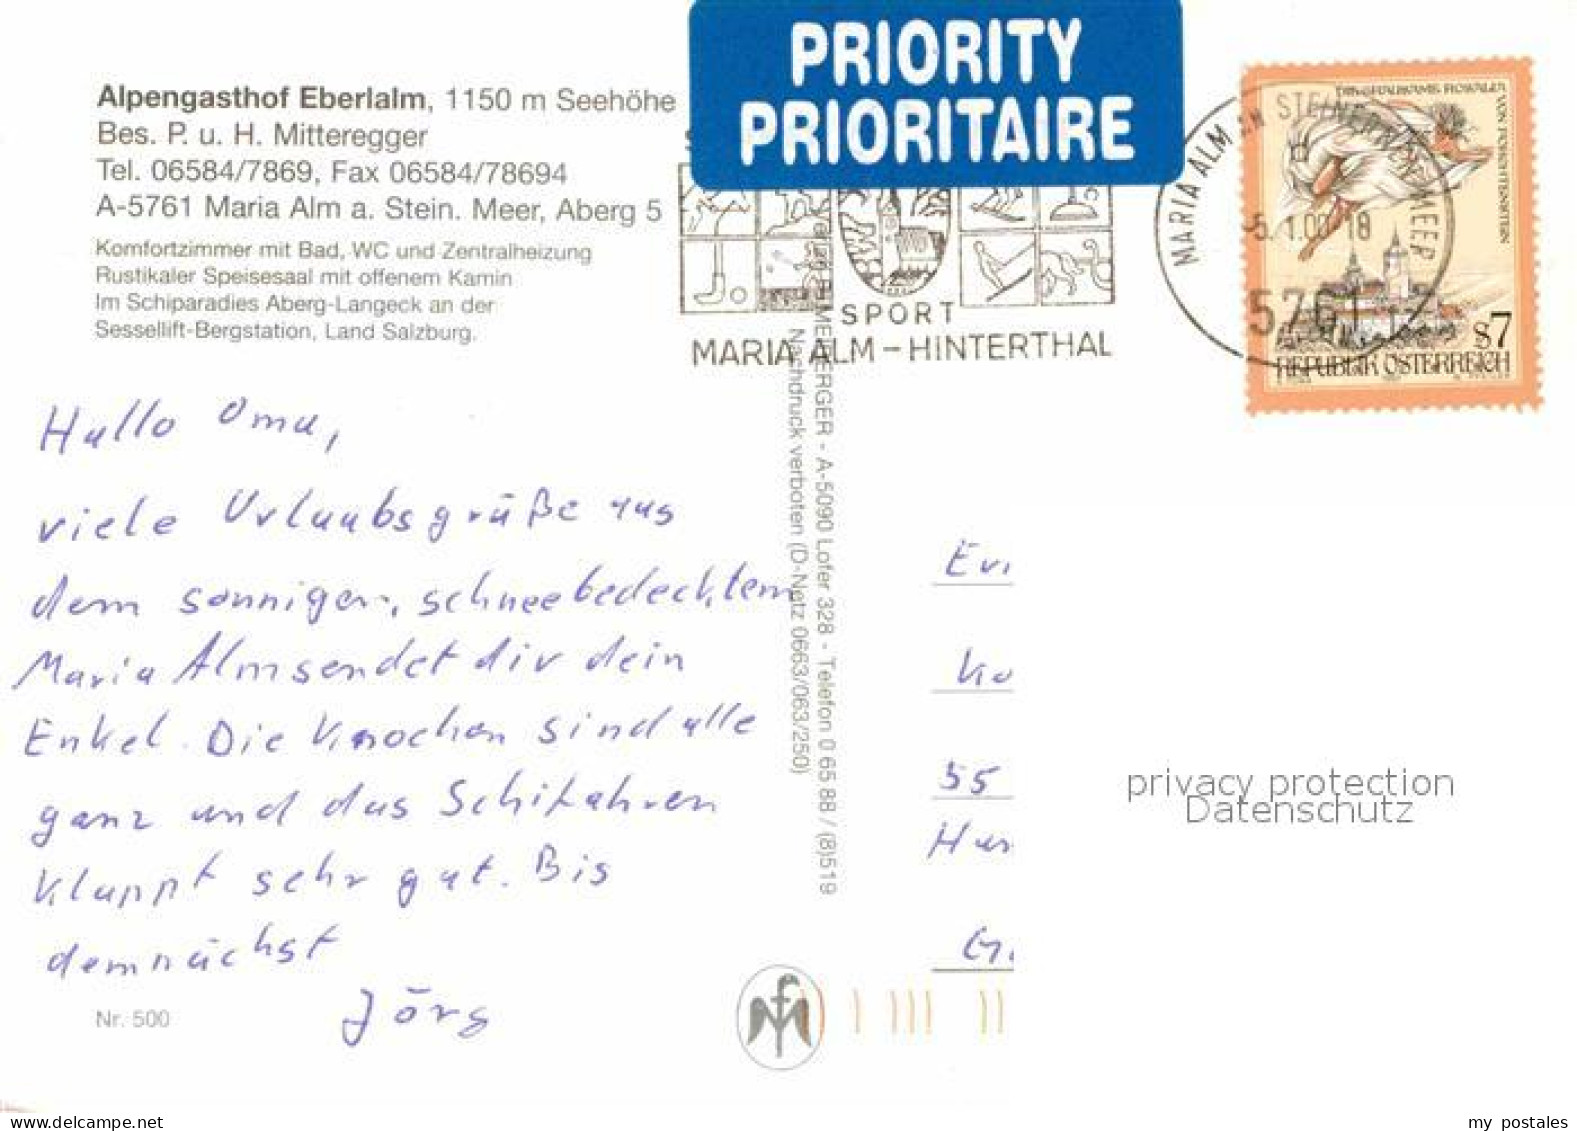 PRIORITY
PRIORITAIRE
Alpengasthof Eberlalm, 1150 m Seehöhe
Bes. P. u. H. Mitteregger
Tel. 06584/7869, Fax 06584/78694
A-5761 Maria Alm a. Stein. Meer, Aberg 5
Komfortzimmer mit Bad, WC und Zentralheizung
Rustikaler Speisesaal mit offenem Kamin
Im Schiparadies Aberg-Langeck an der
Sessellift-Bergstation, Land Salzburg.
SPORT
MARIA ALM - HINTERTHAL
MARIA ALM AM STEINERNEN MEER
5761
VON FORCHTENSTEIN
S7
REPUBLIK ÖSTERREICH
Hallo Oma,
viele Urlaubsgrüße aus
dem sonnigen, schneebedecktem
Maria Alm sendet dir dein
Enkel. Die Knochen sind alle
ganz und das Schifahren
klappt sehr gut. Bis
demnächst
Jörg
Nr. 500
MEMBERGER - A-5090 Lofer 328 - Telefon 0 65 88 / (8)519
Nachdruck verboten (D-Netz 0663/063/250)
Evi
Ko
55
Han
privacy protection
Datenschutz
my postales